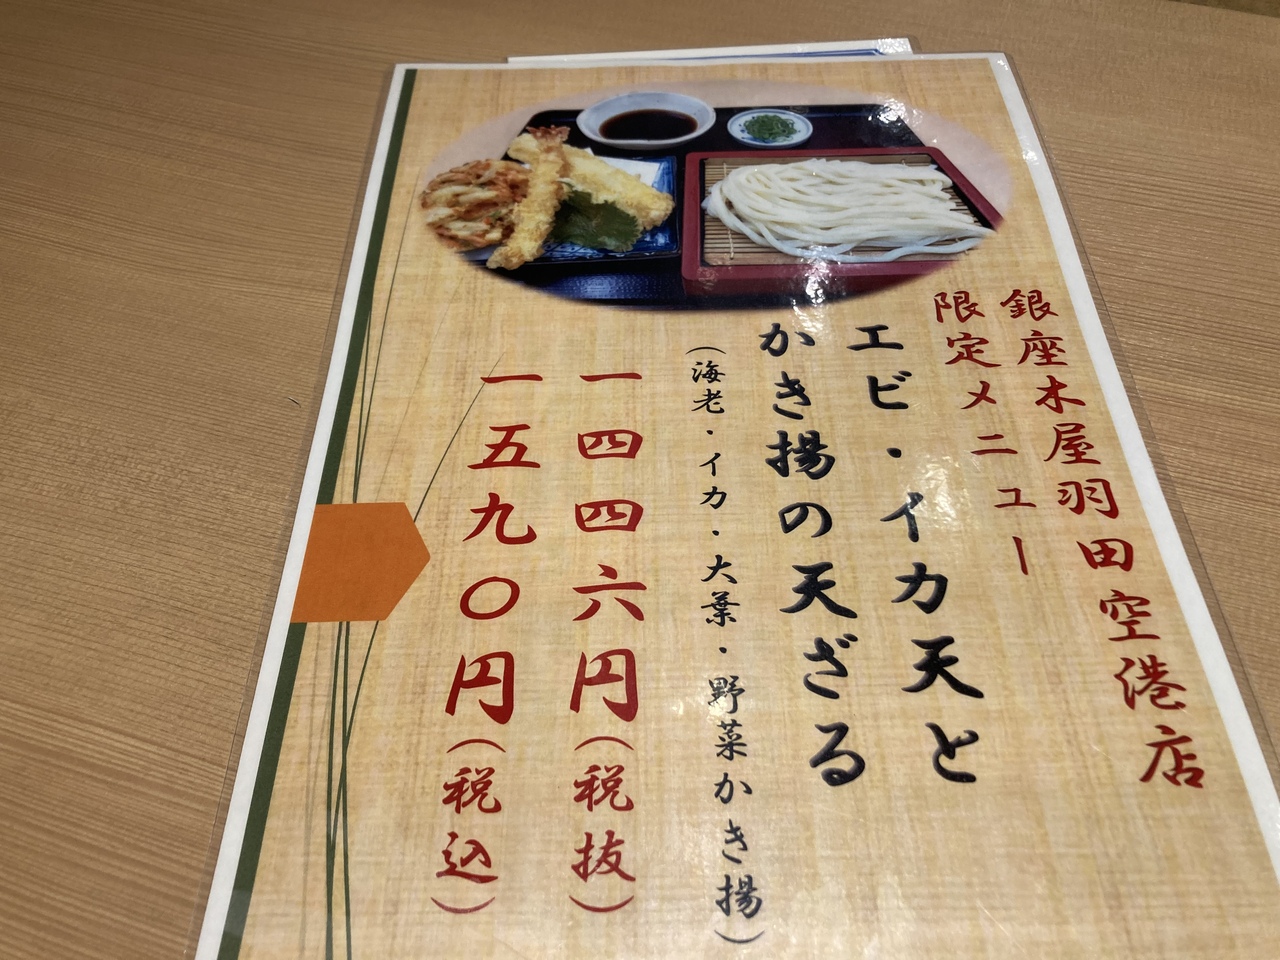 銀座木屋羽田空港店
限定メニュー
エビ・イカ天と
かき揚の天ざる
（海老・イカ・大葉・野菜かき揚）
一四四六円（税抜）
一五九〇円（税込）